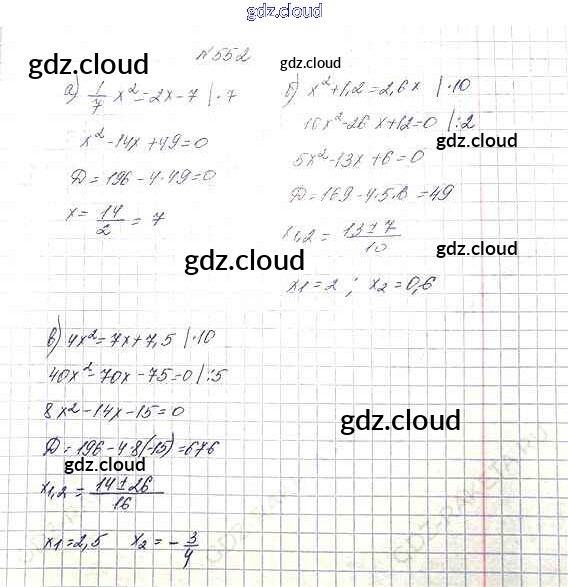 gdz.cloud
№552
gdz.cloud
а) 1/7 x² = 2x - 7 | · 7
x² - 14x + 49 = 0
D = 196 - 4 · 49 = 0
x = 14/2 = 7
б) x² + 1,2 = 2,6x | · 10
10x² - 26x + 12 = 0 | : 2
gdz.cloud
5x² - 13x + 6 = 0
D = 169 - 4 · 5 · 6 = 49
x1,2 = 13 ± 7 / 10
gdz.cloud
gdz.cloud
x1 = 2 ; x2 = 0,6
в) 4x² = 7x + 7,5 | · 10
40x² - 70x - 75 = 0 | : 5
8x² - 14x - 15 = 0
gdz.cloud
D = 196 - 4 · 8 (-15) = 676
gdz.cloud
x1,2 = 14 ± 26 / 16
x1 = 2,5 x2 = - 3/4
GDZ-RAKETA.RU